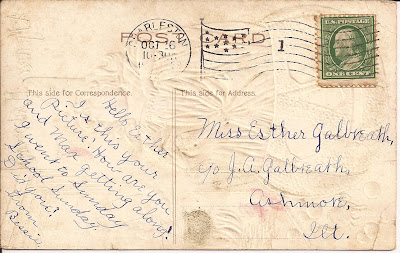 CHARLESTON
OCT 16
10-30
POST CARD
1
U.S. POSTAGE
ONE CENT
This side for Correspondence.
This side for Address.
Hello Esther
Is this your
Picture? How are you
and Max getting along?
I went to Sunday
School Sunday
Did you?
From
Bessie
Miss Esther Galbreath,
c/o J.A. Galbreath,
Ashmore,
Ill.